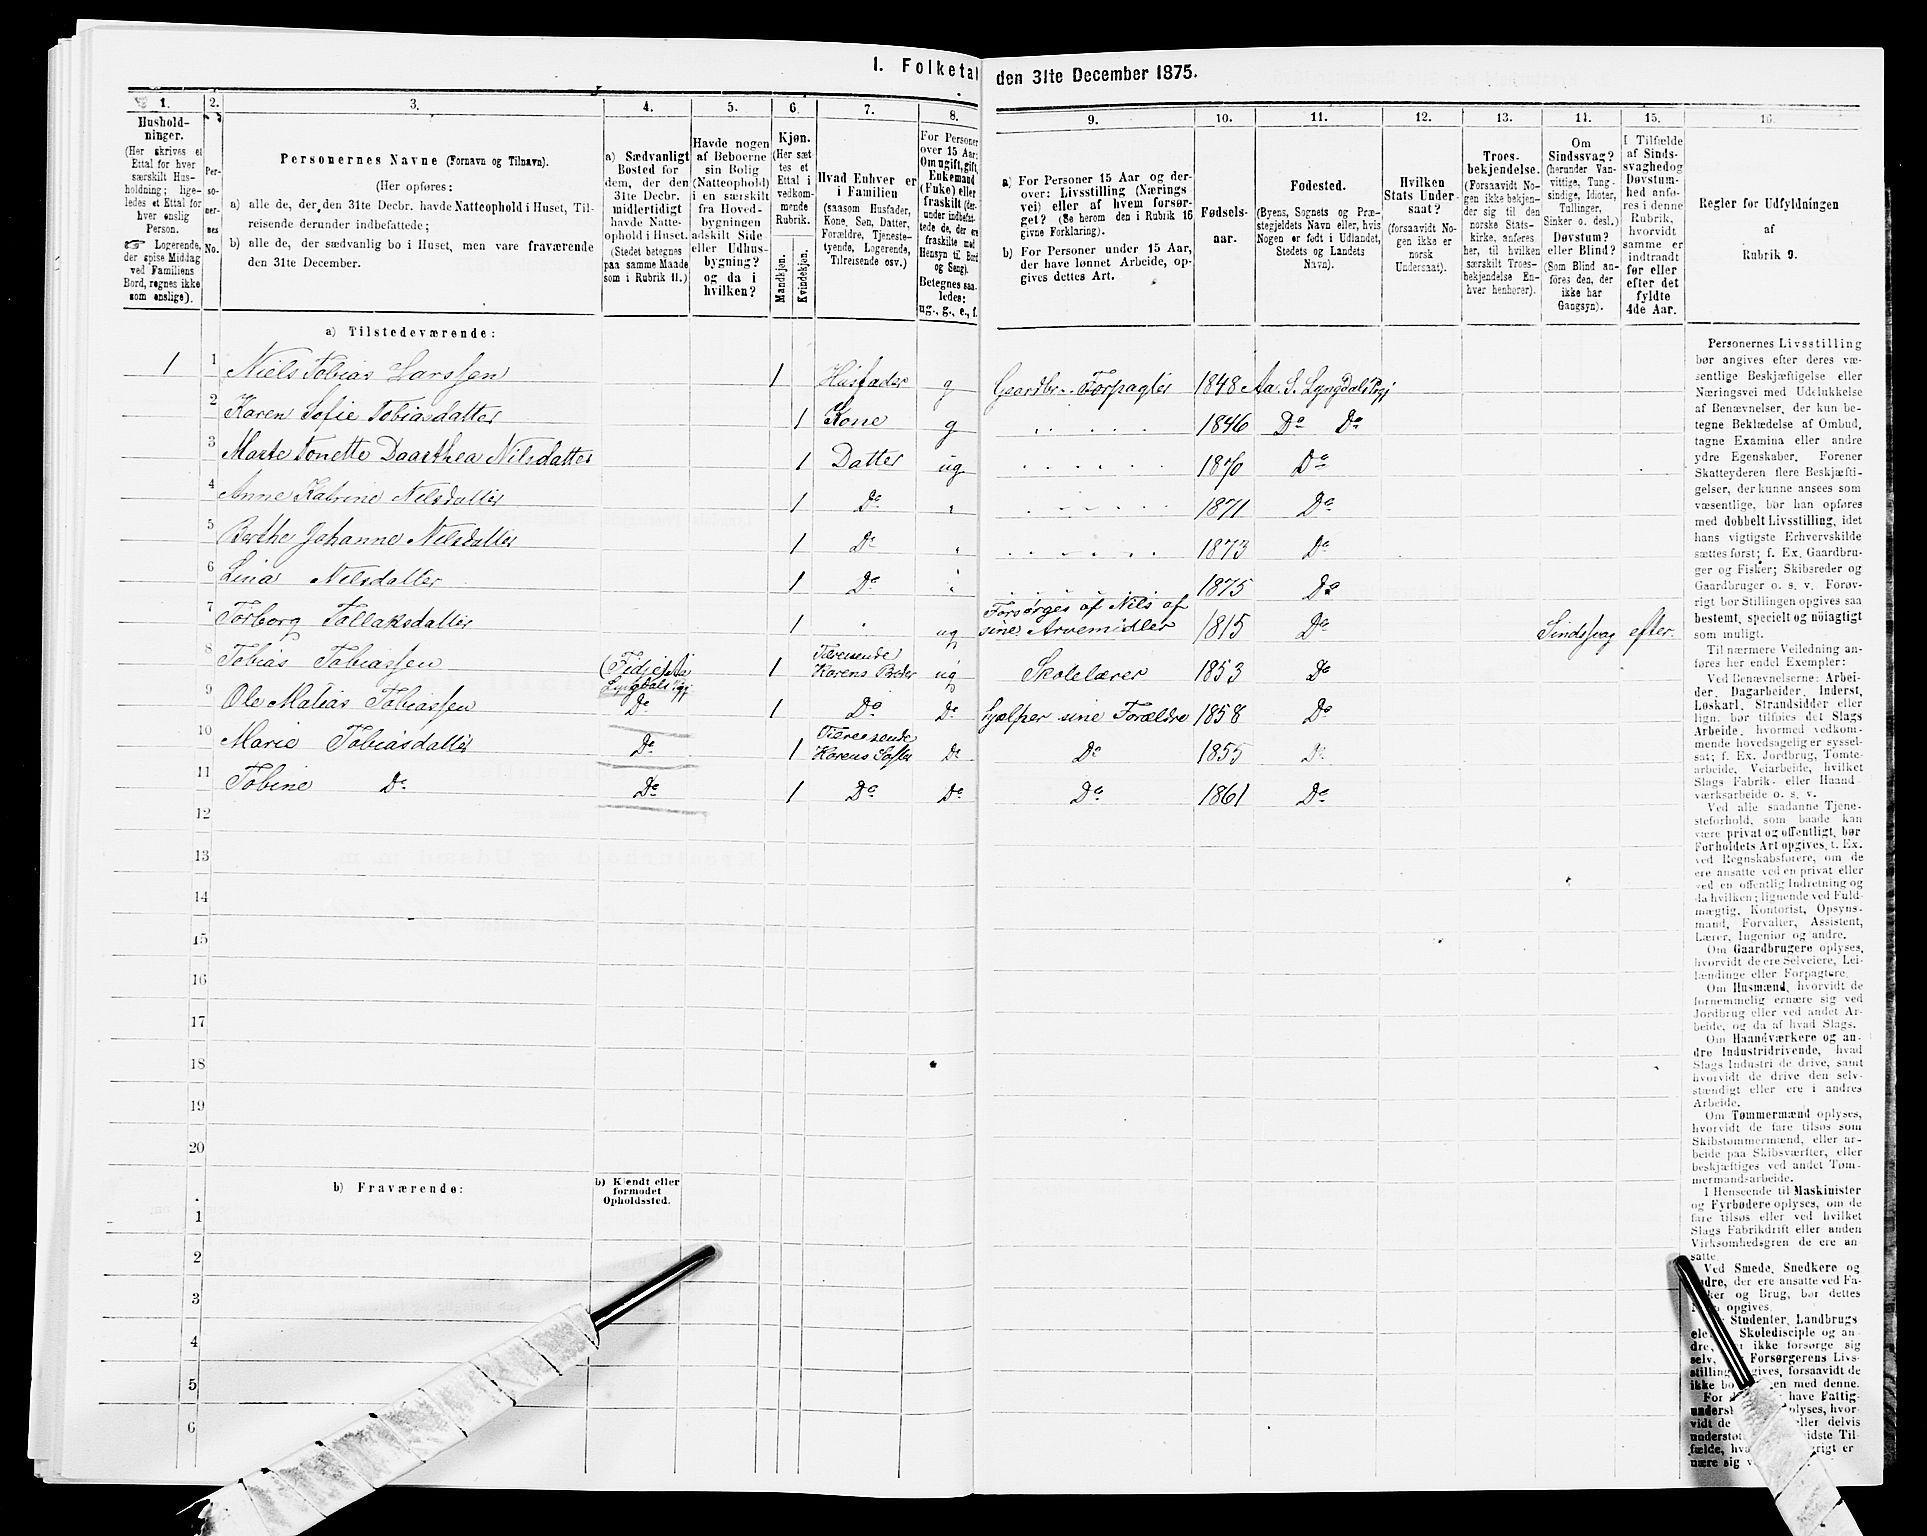 1. Folketal
den 31te December 1875.
1.
Hushold-
ninger.
(Her skrives et
Ettal for hver
særskilt Hus-
holdning; lige-
ledes et Ettal for
hver enslig
Person.
☞ Logerende,
der spise Middag
ved Familiens
Bord, regnes ikke
som enslige).
2.
Per-
so-
ner-
nes
No.
3.
Personernes Navne (Fornavn og Tilnavn).
(Her opføres:
a) alle de, der den 31te Decbr. havde Natteophold i Huset, Til-
reisende derunder indbefattede;
b) alle de, der sædvanlig bo i Huset, men vare fraværende
den 31te December.
4.
a) Sædvanligt
Bosted for
dem, der den
31te Decbr.
midlertidigt
havde Natte-
ophold i Huset.
(Stedet betegnes
paa samme Maade
som i Rubrik 11.)
5.
Havde nogen
af Beboerne
sin Bolig
(Natteophold)
i en særskilt
fra Hoved-
bygningen
adskilt Side-
eller Udhus-
bygning?
og da i
hvilken?
6.
Kjøn.
(Her sæt
tes et
Ettal i
vedkom-
mende
Rubrik.
Mandkjøn.
Kvindekjøn.
7.
Hvad Enhver er
i Familien
(saasom Husfader,
Kone, Søn, Datter,
Forældre, Tjeneste-
tyende, Logerende,
Tilreisende osv.)
8.
For Personer
over 15 Aar:
Om ugift, gift,
Enkemand
(Enke) eller
fraskilt (der-
under indbefat-
tede de, der ere
fraskilte med
Hensyn til Bord
og Seng).
Betegnes saa-
ledes:
ug., g., e., f.
9.
a) For Personer 15 Aar og der-
over: Livsstilling (Nærings
vei) eller af hvem forsør-
get? (Se herom den i Rubrik 16
givne Forklaring).
b) For Personer under 15 Aar,
der have lønnet Arbeide, op-
gives dettes Art.
10.
Fødsels-
aar.
11.
Fødested.
(Byens, Sognets og Præ-
stegjeldets Navn eller, hvis
Nogen er født i Udlandet,
Stedets og Landets
Navn).
12.
Hvilken
Stats Under-
saat?
(forsaavidt No-
gen ikke er
norsk
Undersaat).
13.
Troes-
bekjendelse.
(Forsaavidt No-
gen ikke bekjen-
der sig til den
norske Stats-
kirke, anføres
her, til hvilken
særskilt Troes-
bekjendelse En-
hver henhører).
14.
Om
Sindssvag?
(herunder Van-
vittige, Tung-
sindige, Idioter,
Tullinger,
Sinker o. desl.)
Døvstum?
eller Blind?
(Som Blind an-
føres den, der
ikke har
Gangsyn).
15.
I Tilfælde
af Sinds-
svaghed og
Døvstum-
hed anfø-
res i denne
Rubrik,
hvorvidt
samme er
indtraadt
før eller
efter det
fyldte
4de Aar.
16.
Regler for Udfyldningen
af
Rubrik 9.
a) Tilstedeværende:
1 1 Niels Tobias Larssen 1 Husfader g Gaardbr. Forpagter 1848 Aa. S. Lyngdals Pgj
2 Karen Sofie Tobiasdatter 1 Kone g 1846 Do Do
3 Marte Tonette Daarthea Nilsdatter 1 Datter ug 1870 Do
4 Anne Katrine Nilsdatter 1 Do 1871 Do
5 Berthe Johanne Nilsdatter 1 Do 1873 Do
6 Lina Nilsdatter 1 Do 1875 Do
7 Torborg Tollaksdatter 1 ug Forsørges af Nils af
sine Arvemidler 1815 Do Sindssvag efter.
8 Tobias Tobiassen (Fidje Aa
Lyngdals Pgj 1 Tilreisende
Karens Broder ug Skolelærer 1853 Do
9 Ole Matias Tobiassen Do 1 Do Do hjælper sine Forældre 1858 Do
10 Marie Tobiasdatter Do 1 Tilreisende
Karens Søster Do Do 1855 Do
11 Tobine Do Do 1 Do Do Do 1861 Do
12
13
14
15
16
17
18
19
20
b) Fraværende:
b) Kjendt eller
formodet
Opholdssted.
1
2
3
4
5
6
Personernes Livsstilling
bør angives efter deres væ-
sentlige Beskjæftigelse eller
Næringsvei med Udelukkelse
af Benævnelser, der kun be-
tegne Beklædelse af Ombud,
tagne Examina eller andre
ydre Egenskaber. Forener
Skatteyderen flere Beskjæfti-
gelser, der kunne ansees som
væsentlige, bør han opføres
med dobbelt Livsstilling, idet
hans vigtigste Erhvervskilde
sættes først; f. Ex. Gaardbru-
ger og Fisker; Skibsreder og
Gaardbruger o. s. v. Forøv-
rigt bør Stillingen opgives saa
bestemt, specielt og nøiagtigt
som muligt.
Til nærmere Veiledning an-
føres her endel Exempler:
Ved Benævnelserne: Arbei-
der, Dagarbeider, Inderst,
Løskarl, Strandsidder eller
lign. bør tilføies det Slags
Arbeide, hvormed vedkom-
mende hovedsagelig er syssel-
sat; f. Ex. Jordbrug, Tomte-
arbeide, Veiarbeide, hvilket
Slags Fabrik- eller Haand-
værksarbeide o. s. v.
Ved alle saadanne Tjene-
steforhold, som baade kan
være privat og offentligt, bør
Forholdets Art opgives, t. Ex.
ved Regnskabsførere, om de
ere ansatte ved en privat eller
ved en offentlig Indretning og
da hvilken; lignende ved Fuld-
mægtig, Kontorist, Opsyns-
mand, Forvalter, Assistent,
Lærer, Ingeniør og andre.
Om Gaardbrugere oplyses,
hvorvidt de ere Selveiere, Lei-
lændinge eller Forpagtere.
Om Husmænd, hvorvidt de
fornemmelig ernære sig ved
Jordbrug eller ved andet Ar-
beide, og da af hvad Slags.
Om Haandværkere og an-
dre Industridrivende, hvad
Slags Industri de drive, samt
hvorvidt de drive den selv-
stændigt eller ere i andres
Arbeide.
Om Tømmermænd oplyses,
hvorvidt de fare tilsøs som
Skibstømmermænd, eller ar-
beide paa Skibsværfter, eller
beskjæftiges ved andet Tøm-
mermandsarbeide.
I Henseende til Maskinister
og Fyrbødere oplyses, om de
fare tilsøs eller ved hvilket
Slags Fabrikdrift eller anden
Virksomhedsgren de ere an-
satte
Ved Smede, Snedkere og
Andre, der ere ansatte ved Fa-
og Brug, bør dettes
opgives.
Studenter, Landbrugs
Skoledisciple og an-
dre, ikke forsørge sig
selv, Forsørgerens Livs-
stilling forsaavidt de
ikke en med denne.
For have Fattig-
underst oplyses, hvor-
vidt de eller delvis
sidste Til-
fælde,
nære sig